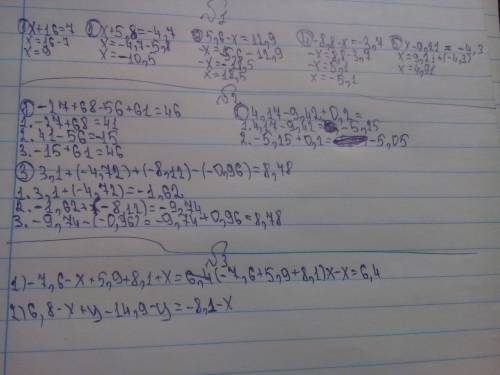 №1
1) x+16=7
x=16-7
x=9
2) x+5,8=-4,7
x=-4,7-5,8
x=-10,5
3) 5,6-x=12,9
-x=5,6-12,9
-x=-18,5
x=18,5
4) -8,8-x=-3,7
-x=8,8-3,7
-x=5,1
x=-5,1
5) x-9,21=-4,3
x=9,21+(-4,3)
x=4,91
№2
1) -27+68-56+61=46
1. -27+68=41
2. 41-56=-15
3. -15+61=46
2) 4,17-9,42+0,2=
1. 4,17-9,42=-5,25
2. -5,25+0,2=-5,05
3) 3,1+(-4,72)+(-8,12)-(-0,96)=8,48
1. 3,1+(-4,72)=-1,62
2. -1,62+(-8,12)=-9,74
3. -9,74-(-0,96)=-9,74+0,96=8,48
№3
1) -7,6-x+5,9+8,1+x=6,4(-7,6+5,9+8,1)x-x=6,4
2) 6,8-x+y-14,9-y=-8,1-x